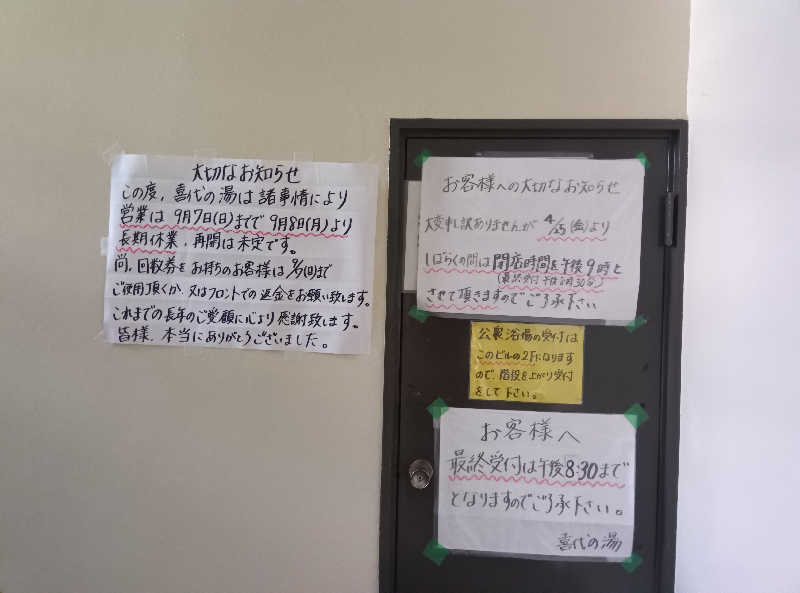 大切なお知らせ
この度、喜代の湯は諸事情により
営業は 9月7日(日)までで 9月8日(月)より
長期休業、再開は未定です。
尚、回数券をお持ちのお客様は9/7(日)まで
ご使用頂くか、又はフロントでの返金をお願い致します。
これまでの長年のご愛顧に心より感謝致します。
皆様、本当にありがとうございました。
お客様への大切なお知らせ
大変申し訳ありませんが 4/25(金)より
しばらくの間は閉店時間を午後9時と
(最終受付 午後8時30分)
させて頂きますのでご了承下さい
公衆浴場の受付は
このビルの2Fになります
ので、階段を上がり受付
をして下さい。
お客様へ
最終受付は午後8:30まで
となりますのでご了承下さい。
喜代の湯